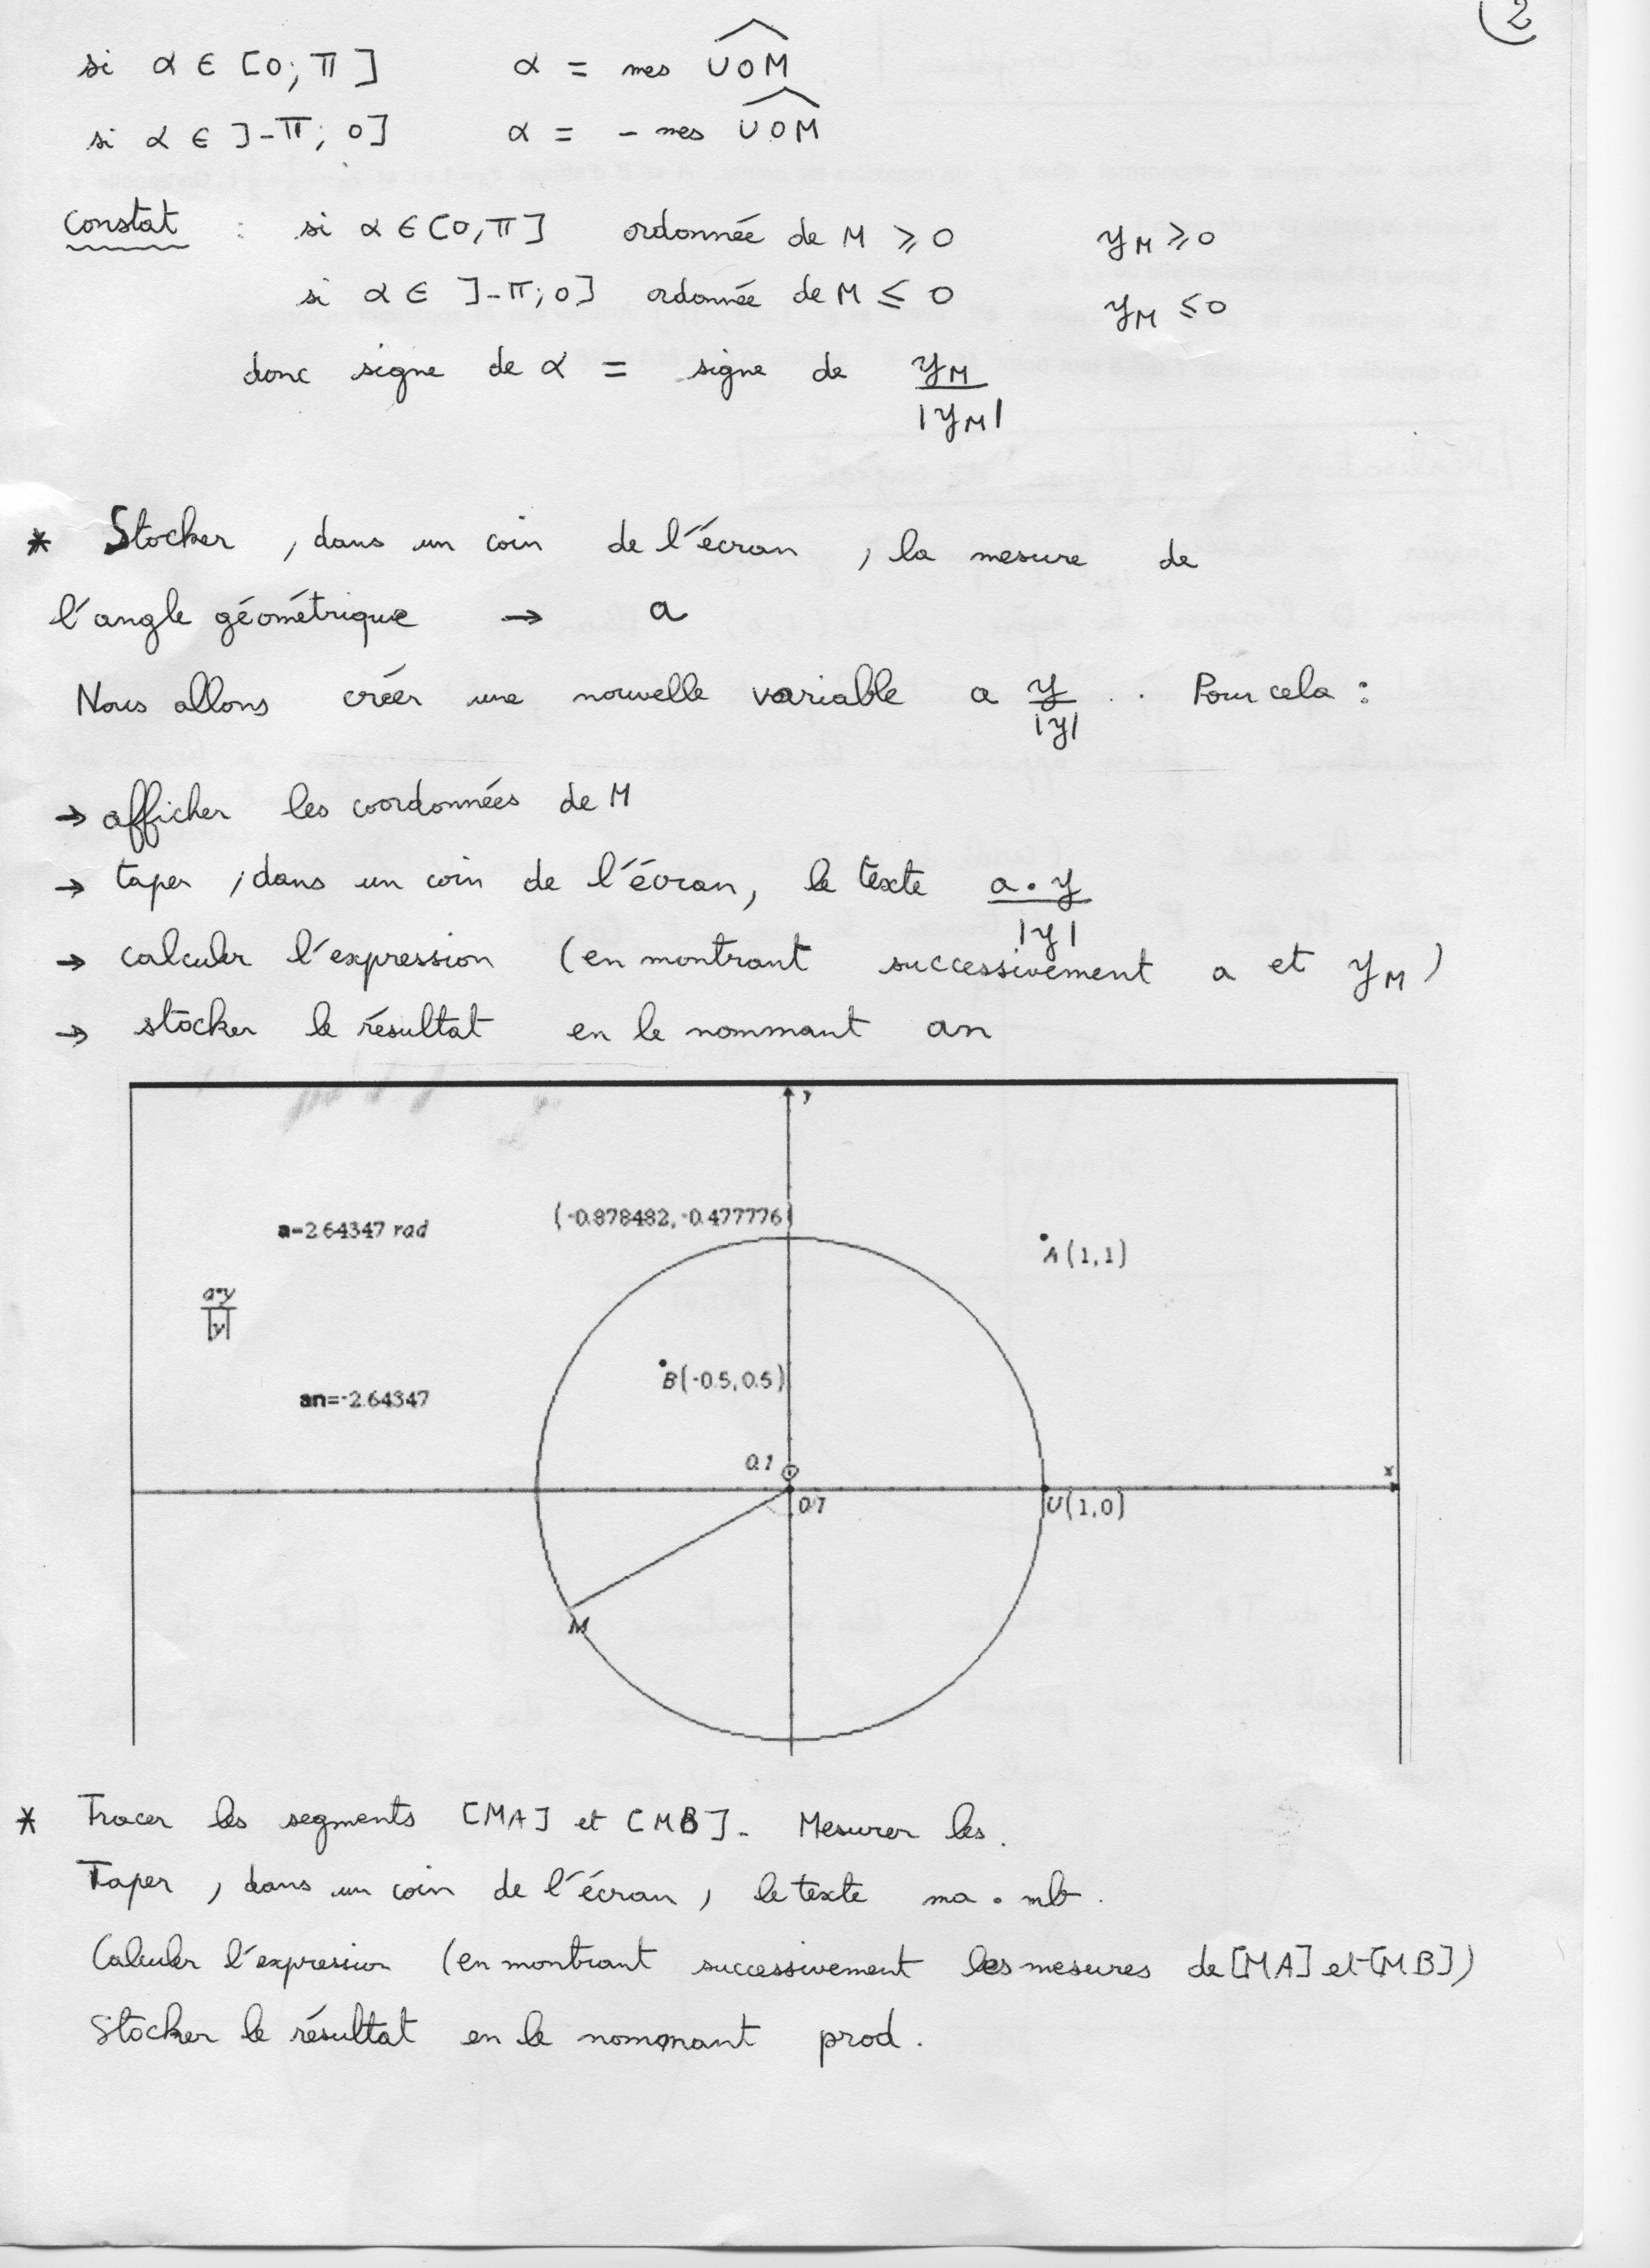 2
si α ∈ [0; π] α = mes UOM
si α ∈ ]-π; 0] α = - mes UOM
Constat : si α ∈ [0, π] ordonnée de M ⩾ 0 yM ⩾ 0
si α ∈ ]-π; 0] ordonnée de M ≤ 0 yM ≤ 0
donc signe de α = signe de yM / |yM|
* Stocker, dans un coin de l'écran, la mesure de
l'angle géométrique → a
Nous allons créer une nouvelle variable a y/|y| . Pour cela :
→ afficher les coordonnées de M
→ taper, dans un coin de l'écran, le texte a·y/|y|
→ calculer l'expression (en montrant successivement a et yM)
→ stocker le résultat en le nommant an
y
a=2.64347 rad
(-0.878482,-0.477776)
A(1,1)
a·y/|y|
B(-0.5,0.5)
an=-2.64347
0.1
O
x
0.1
U(1,0)
M
* Tracer les segments [MA] et [MB]. Mesurer les.
Taper, dans un coin de l'écran, le texte ma · mb.
Calculer l'expression (en montrant successivement les mesures de [MA] et [MB])
Stocker le résultat en le nommant prod.